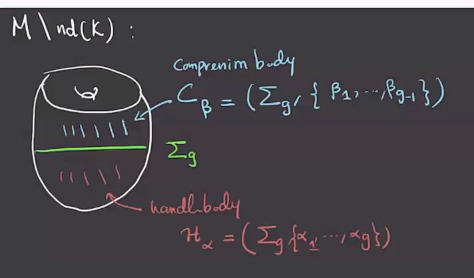 M \ nd(K) :
Comprenim body
C_β = (Σ_g, { β_1, ..., β_{g-1} })
Σ_g
handlbody
H_α = (Σ_g {α_1, ..., α_g})